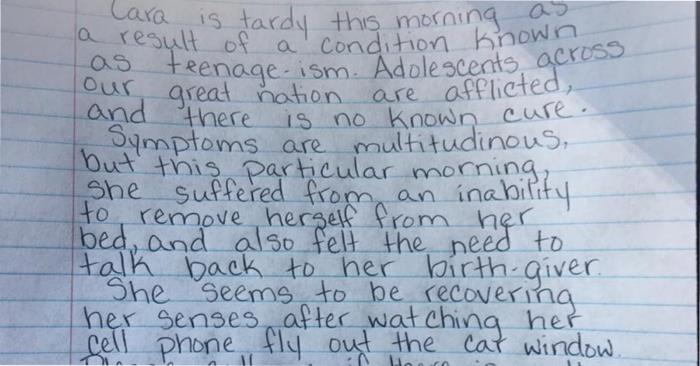 Cara is tardy this morning as
a result of a condition known
as teenage-ism. Adolescents across
our great nation are afflicted,
and there is no known cure.
Symptoms are multitudinous,
but this particular morning,
she suffered from an inability
to remove herself from her
bed, and also felt the need to
talk back to her birth-giver.
She seems to be recovering
her senses after watching her
cell phone fly out the car window.